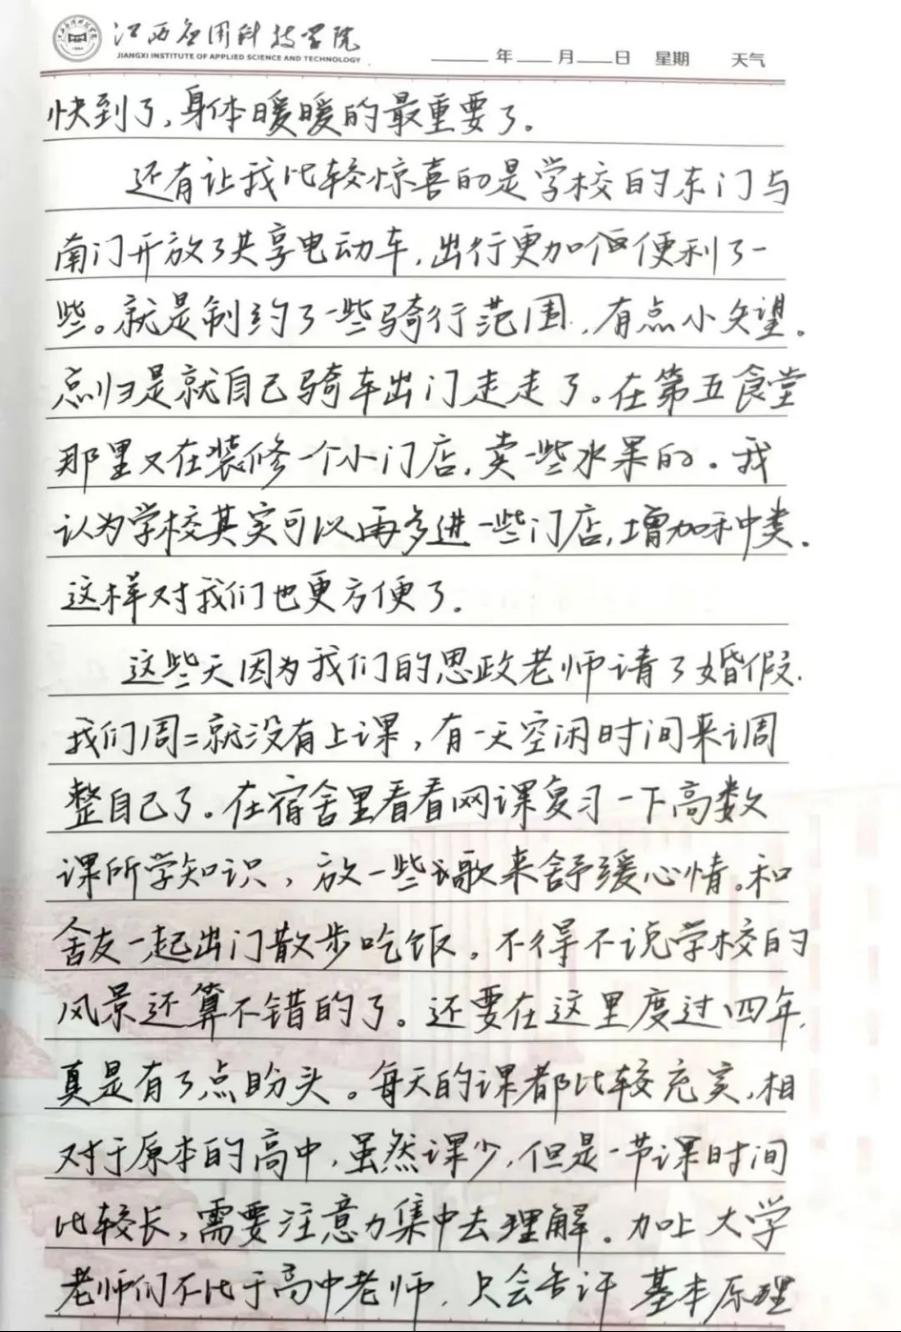 江西应用科技学院
JIANGXI INSTITUTE OF APPLIED SCIENCE AND TECHNOLOGY
年 月 日 星期 天气
快到了,身体暖暖的最重要了。
还有让我比较惊喜的是学校的东门与
南门开放了共享电动车,出行更加便利了一
些。就是制约了一些骑行范围,有点小失望。
总归是就自己骑车出门走走了。在第五食堂
那里又在装修一个小门店,卖一些水果的。我
认为学校其实可以再多进一些门店,增加种类。
这样对我们也更方便了。
这些天因为我们的思政老师请了婚假.
我们周二就没有上课,有一天空闲时间来调
整自己了。在宿舍里看看网课复习一下高数
课所学知识,放一些歌来舒缓心情。和
舍友一起出门散步吃饭。不得不说学校的
风景还算不错的了。还要在这里度过四年.
真是有了点盼头。每天的课都比较充实,相
对于原本的高中,虽然课少,但是一节课时间
比较长,需要注意力集中去理解。加上大学
老师们不比于高中老师.只会告诉基本原理